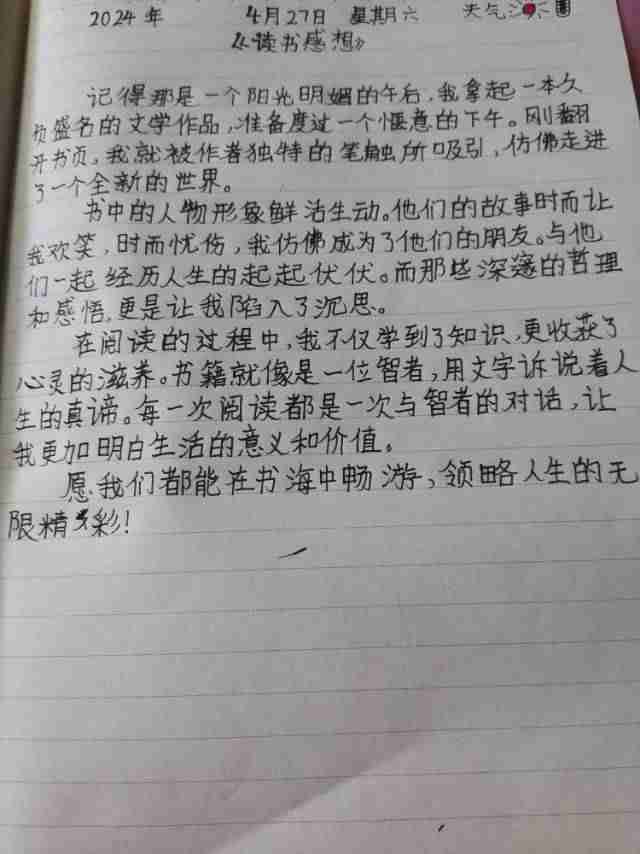 2024年 4月27日 星期六 天气
《读书感想》
记得那是一个阳光明媚的午后,我拿起一本久
负盛名的文学作品,准备度过一个惬意的下午。刚翻
开书页,我就被作者独特的笔触所吸引,仿佛走进
了一个全新的世界。
书中的人物形象鲜活生动。他们的故事时而让
我欢笑,时而忧伤,我仿佛成为了他们的朋友。与他
们一起经历人生的起起伏伏。而那些深邃的哲理
和感悟,更是让我陷入了沉思。
在阅读的过程中,我不仅学到了知识,更收获了
心灵的滋养。书籍就像是一位智者,用文字诉说着人
生的真谛。每一次阅读都是一次与智者的对话,让
我更加明白生活的意义和价值。
愿我们都能在书海中畅游,领略人生的无
限精彩!